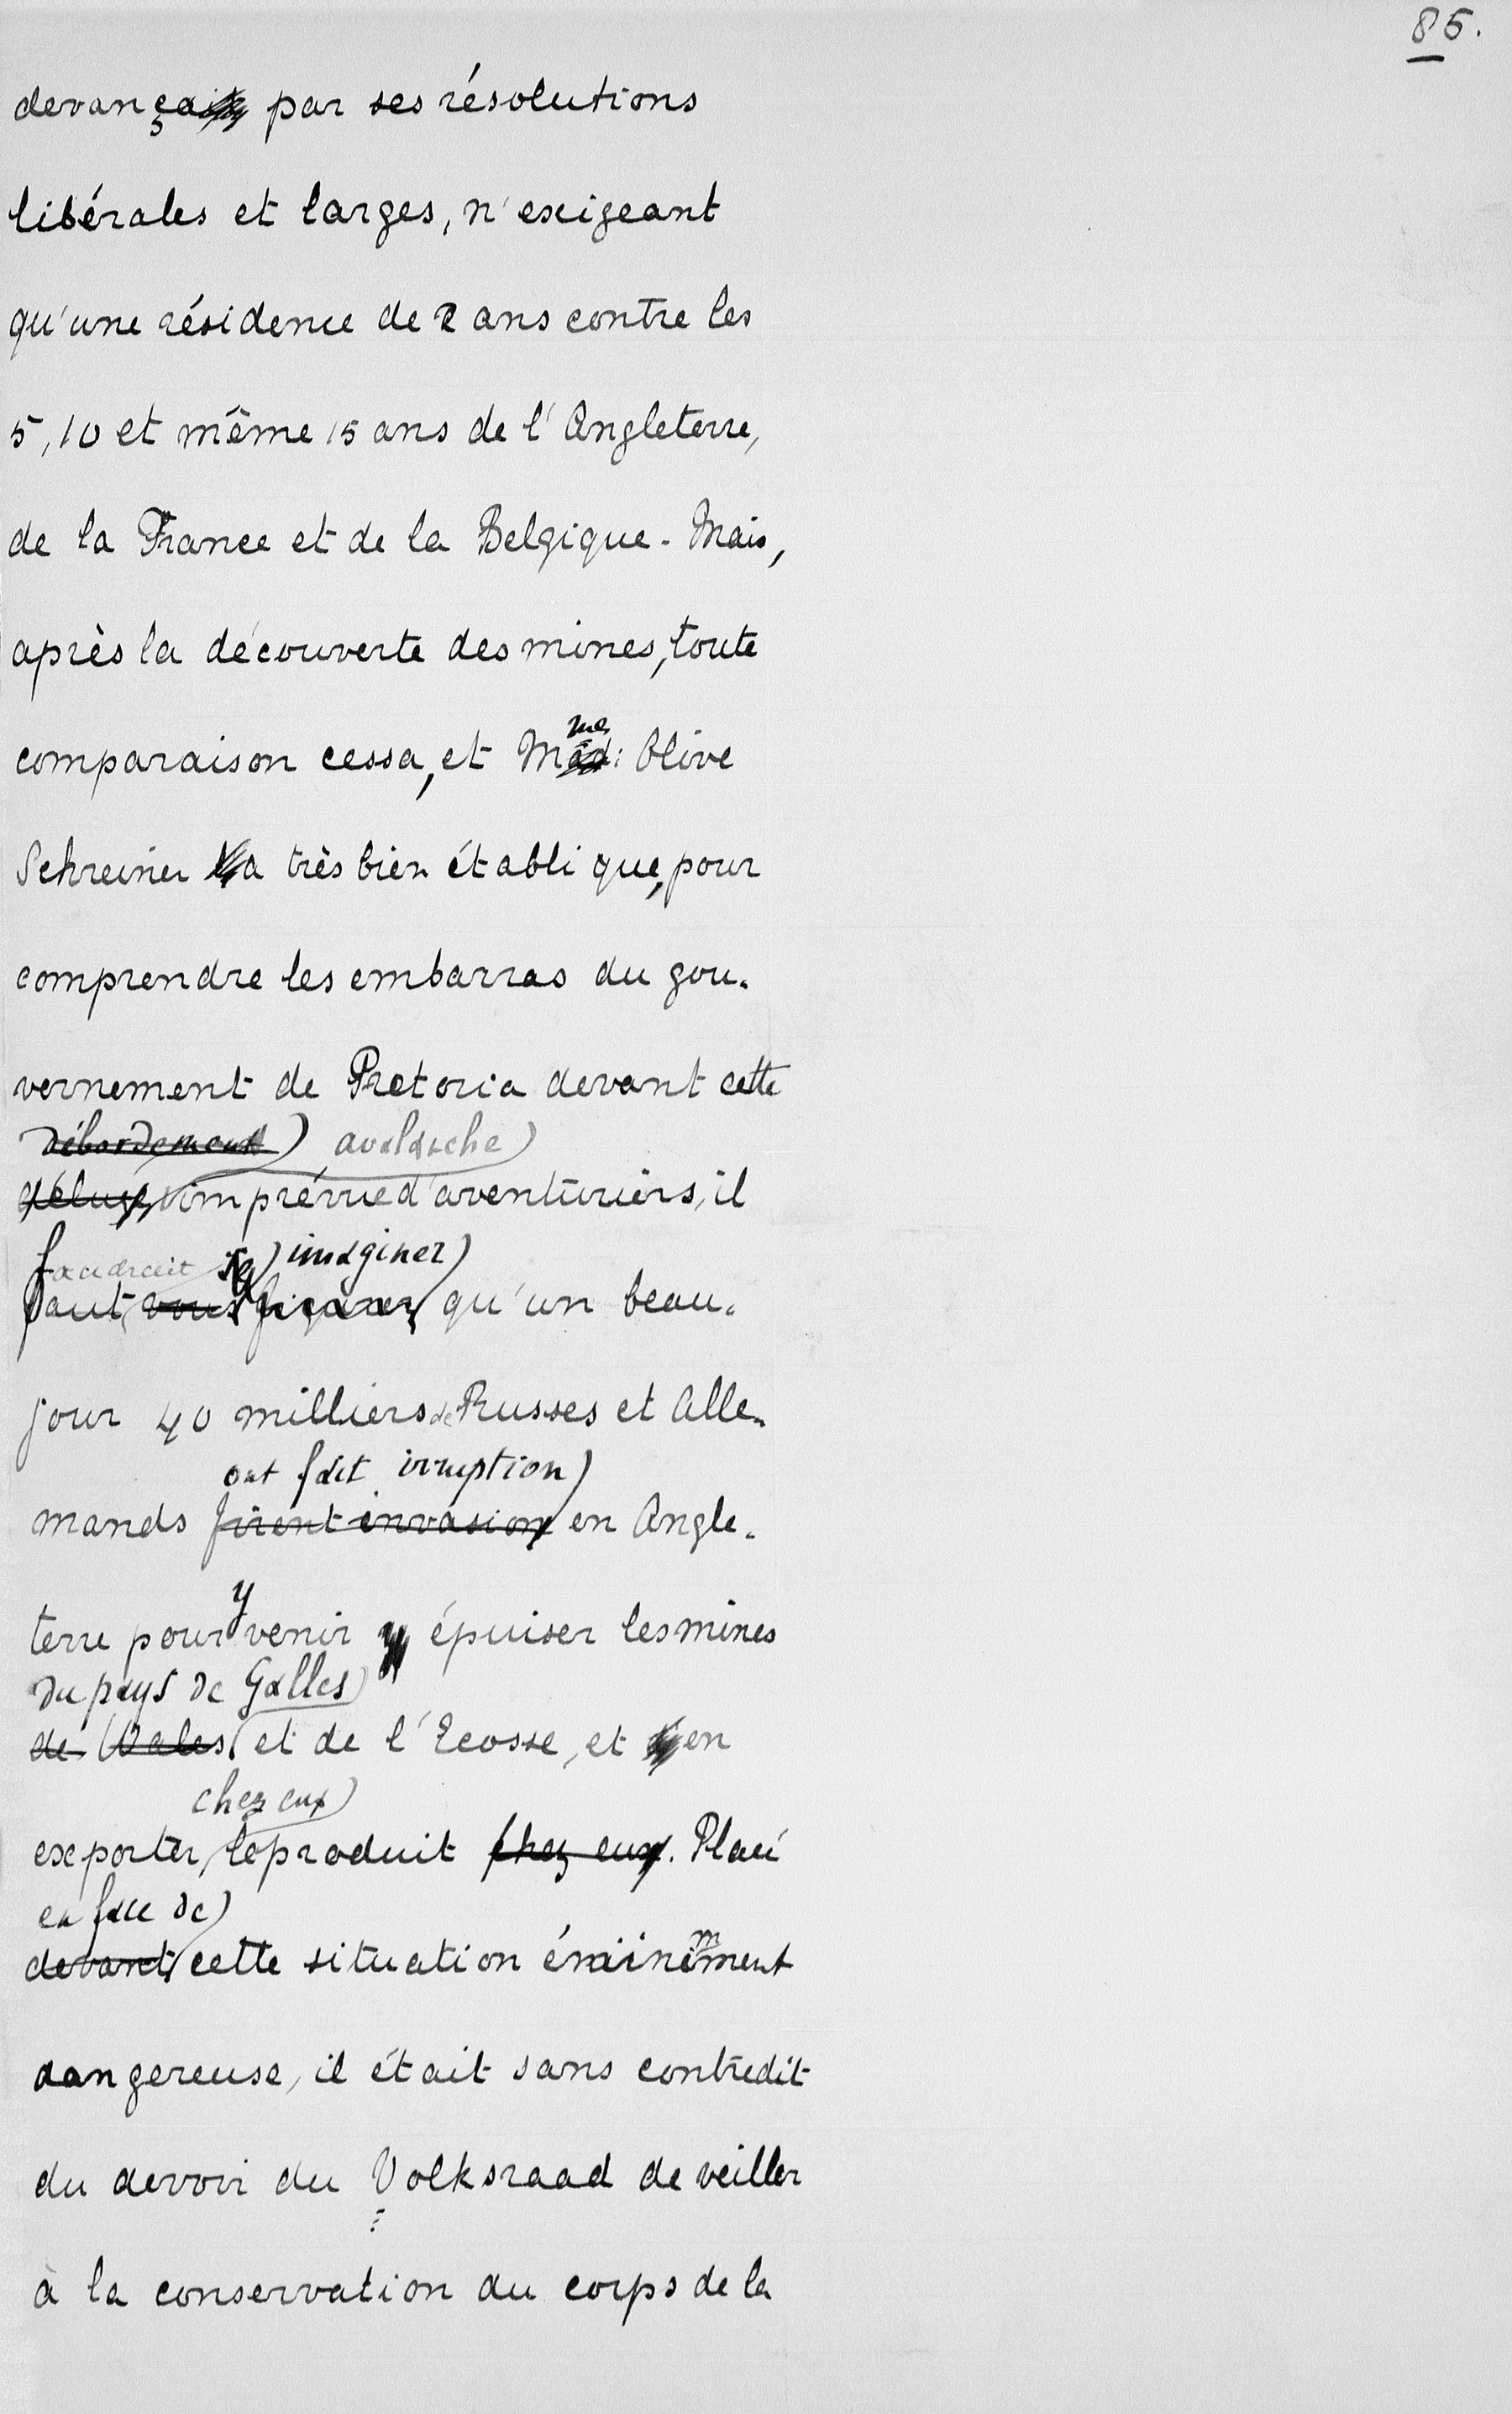 85.
devança par ses résolutions
libérales et larges, n'exigeant
qu'une résidence de 2 ans contre les
5, 10 et même 15 ans de l'Angleterre,
de la France et de la Belgique. Mais,
après la découverte des mines, toute
me
comparaison cessa, et Mad: Olive
Schreiner a très bien établi que, pour
comprendre les embarras du gou-
vernement de Pretoria devant cette
débordement) avalache)
déluge, imprévue d'aventuriers, il
faudrait se) imaginer)
faut vous figurer, qu'un beau-
jour 40 milliers de Russes et Alle-
ont fait irruption)
mands firent invasion en Angle-
y
terre pour venir y épuiser les mines
du pays de Galles)
de Wales et de l'Ecosse, et en
chez eux)
exporter, le produit chez eux. Placé
en face de)
m
devant cette situation éminemment
dangereuse, il était sans contredit
du devoir du Volksraad de veiller
à la conservation du corps de la